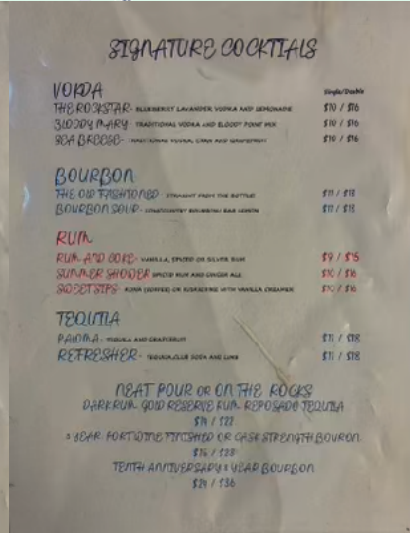 SIGNATURE COCKTIALS
VOKDA
Single/Double
THE ROCKSTAR- BLUEBERRY LAVANDER VODKA AND LEMONADE $10 / $16
BLOODY MARY- TRADITIONAL VODKA AND BLOODY POINT MIX $10 / $16
SEA BREEZE- TRADITIONAL VODKA, CRAN AND GRAPEFRUIT $10 / $16
BOURBON
THE OLD FASHIONED - STRAIGHT FROM THE BOTTLE! $11 / $18
BOURBON SOUR - BOURBON AND LEMON $11 / $18
RUM
RUM AND COKE- VANILLA, SPICED OR SILVER RUM $9 / $15
SUMMER SHODER SPICED RUM AND GINGER ALE $10 / $16
SWEET SIPS- KONA (COFFEE) OR WITH VANILLA CREAMER $10 / $16
TEQUILA
PALOMA- TEQUILA AND GRAPEFRUIT $11 / $18
REFRESHER- TEQUILA, CLUB SODA AND LIME $11 / $18
NEAT POUR OR ON THE ROCKS
DARK RUM- GOLD RESERVE RUM- REPOSADO TEQUILA
$14 / $22
YEAR- PORT WINE FINISHED OR CASK STRENGTH BOURON
$16 / $28
TENTH ANNIVERSARY YEAR BOURBON
$24 / $36